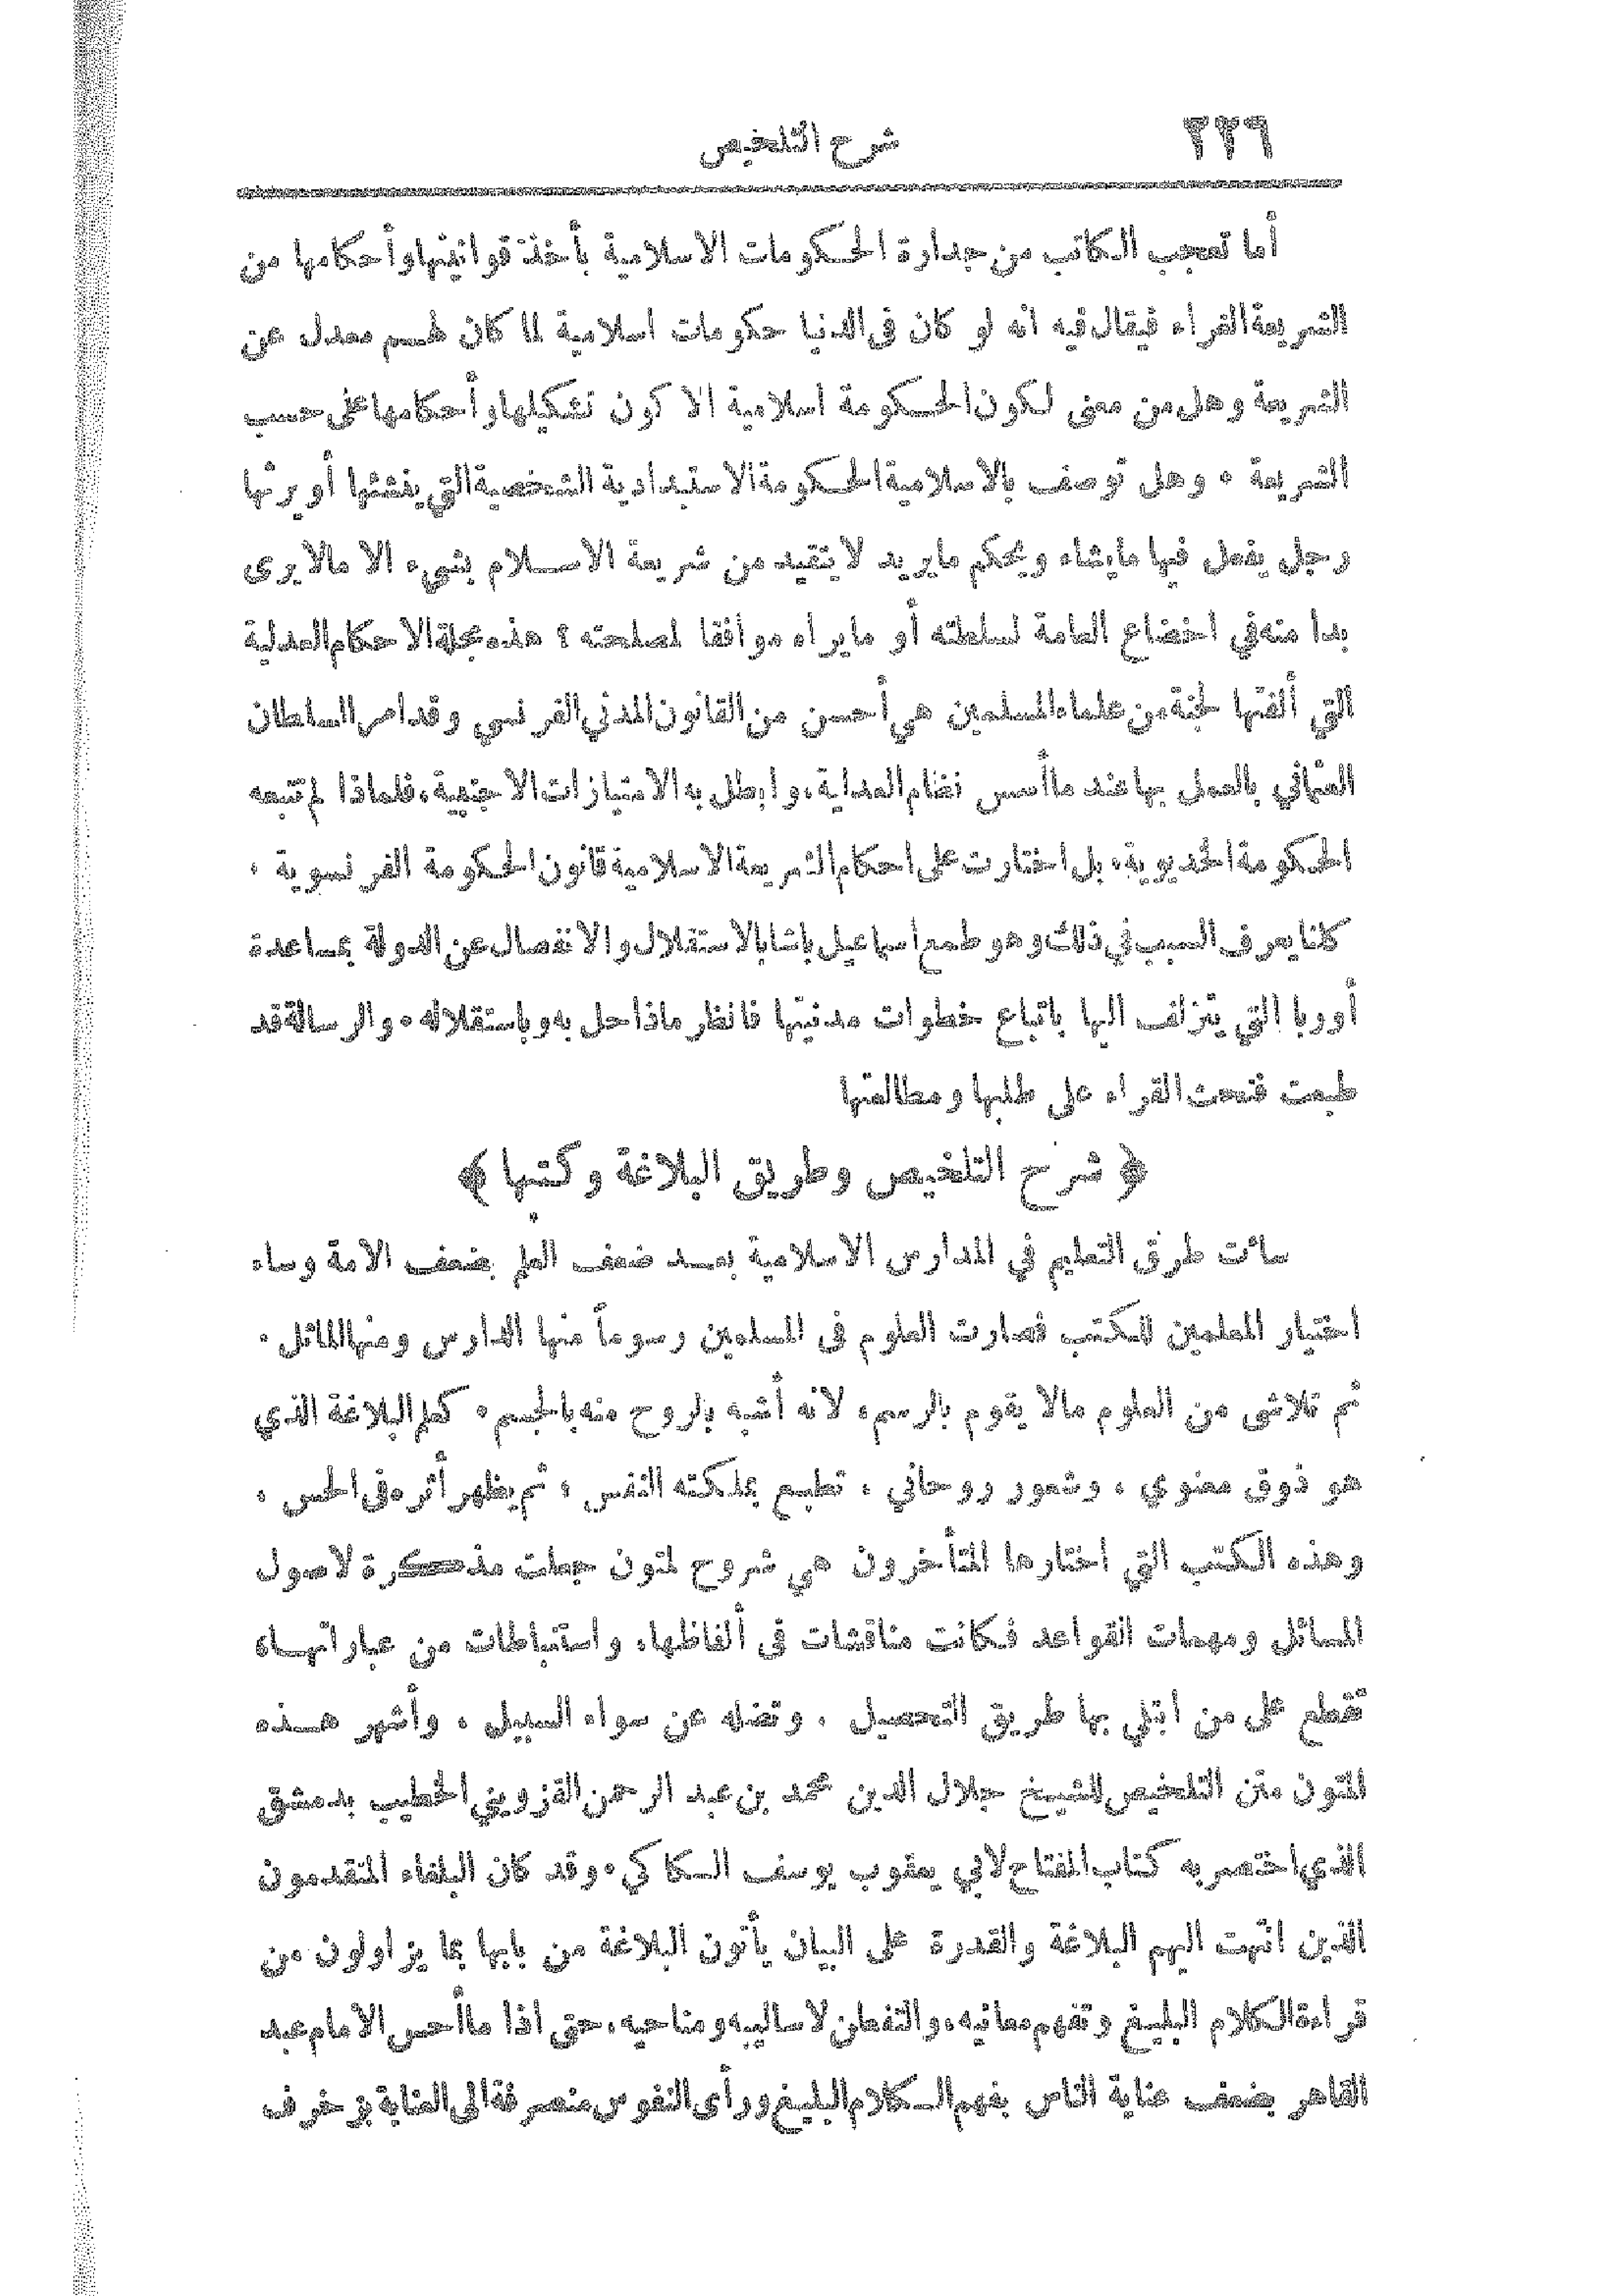 ٢٢٦
شرح التلخيص
أما تعجب الكاتب من جدارة الحكومات الاسلامية بأخذة قوانينها وأحكامها من
الشريعة الغراء فيقال فيه انه لو كان فى الدنيا حكومات اسلامية لما كان لهم معدل عن
الشريعة وهل من معنى لكون الحكومة اسلامية الا كون تشكيلها وأحكامها على حسب
الشريعة ٠ وهل توصف بالاسلامية الحكومة الاستبدادية الشخصية التي ينشئها أو يرثها
رجل يفعل فيها مايشاء ويحكم مايريد لا يتقيد من شريعة الاسلام بشيء الا مالا يرى
بدا منه في اخضاع العامة لسلطته أو مايراه موافقا لمصلحته ؟ هذه مجلة الاحكام العدلية
التي ألفتها لجنة من علماء المسلمين هي أحسن من القانون المدني الفرنسي وقد امر السلطان
العثماني بالعمل بها عند ماأسس نظام العدلية، وابطل به الامتيازات الاجنبية، فلماذا لم تتبعه
الحكومة الخديوية، بل اختارت على احكام الشريعة الاسلامية قانون الحكومة الفرنسوية ٠
كلنا يعرف السبب في ذلك وهو طمع اسماعيل باشا بالاستقلال والانفصال عن الدولة بمساعدة
أوربا التي يتزلف اليها باتباع خطوات مدنيتها فانظر ماذا حل به وباستقلاله ٠ والرسالة قد
طبعت فنحث القراء على طلبها ومطالعتها
﴿ شرح التلخيص وطريق البلاغة وكتبها ﴾
ساءت طرق التعليم في المدارس الاسلامية بعد ضعف العلم بضعف الامة وساء
اختيار المعلمين للكتب فصارت العلوم فى المسلمين رسوماً منها الدارس ومنها الماثل ٠
ثم تلاشى من العلوم مالا يقوم بالرسم، لانه أشبه بالروح منه بالجسم ٠ كعلم البلاغة الذي
هو ذوق معنوي ، وشعور روحاني ، تطبع بملكته النفس ، ثم يظهر أثره فى الحس ،
وهذه الكتب التي اختارها المتأخرون هي شروح لمتون جعلت مذكرة لاصول
المسائل ومهمات القواعد فكانت مناقشات فى ألفاظها، واستنباطات من عباراتها،
تقطع على من ابتلي بها طريق التحصيل ، وتضله عن سواء السبيل ، وأشهر هذه
المتون متن التلخيص للشيخ جلال الدين محمد بن عبد الرحمن القزويني الخطيب بدمشق
الذي اختصر به كتاب المفتاح لابي يعقوب يوسف السكاكي ٠ وقد كان البلغاء المتقدمون
الذين انتهت اليهم البلاغة والقدرة على البيان يأتون البلاغة من بابها بما يزاولون من
قراءة الكلام البليغ وتفهم معانيه، والتفطن لاساليبه ومناحيه، حتى اذا ماأحس الامام عبد
القاهر بضعف عناية الناس بفهم الكلام البليغ ورأى النفوس منصرفة الى العناية بزخرف